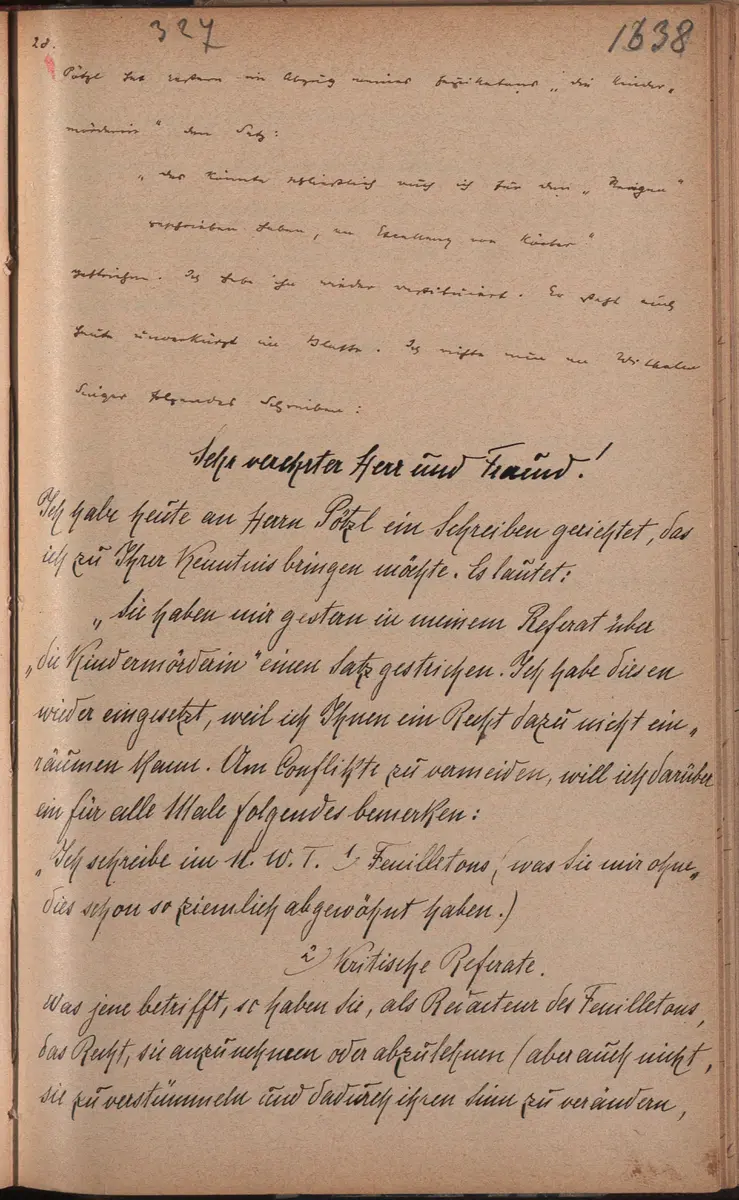 327
1638
28.
Pötzl hat gestern im Abzug meines Feuilletons „die Kinder„
mörderin“ den Satz:
„das könnte schließlich auch ich für den „Reigen“
geschrieben haben, in Escallung von Körber“
gestrichen. Ich habe ihn wieder restituiert. Er steht auch
heute unverkürzt im Blatte. Ich richte nun an Wilhelm
Singer folgendes Schreiben:
Sehr verehrter Herr und Freund!
Ich habe heute an Herrn Pötzl ein Schreiben gerichtet, das
ich zu Ihrer Kenntnis bringen möchte. Es lautet:
„Sie haben mir gestern in meinem Referat über
„die Kindermörderin“ einen Satz gestrichen. Ich habe diesen
wieder eingesetzt, weil ich Ihnen ein Recht dazu nicht ein„
räumen kann. Um Conflikte zu vermeiden, will ich darüber
ein für alle Male folgendes bemerken:
„Ich schreibe im N. W. T. 1) Feuilletons, (was Sie mir ohne„
dies schon so ziemlich abgewöhnt haben.)
2) Kritische Referate.
Was jene betrifft, so haben Sie, als Redacteur des Feuilletons,
das Recht, sie anzunehmen oder abzulehnen (aber auch nicht,
sie zu verstümmeln und dadurch ihren Sinn zu verändern,